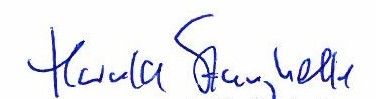 Harald Stanghelle